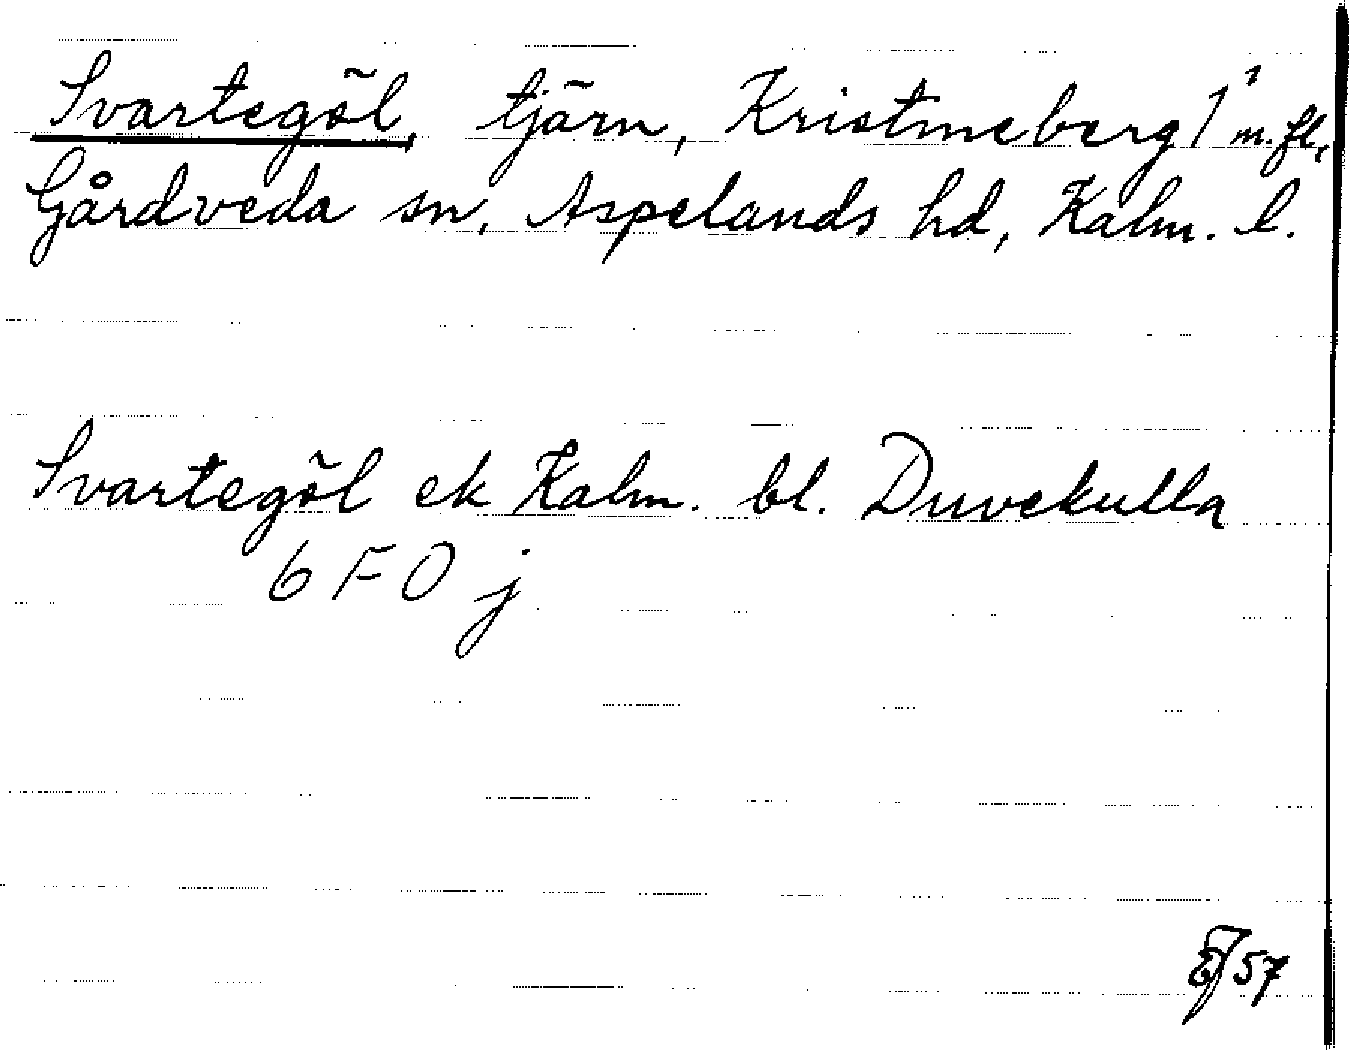 Svartegöl, tjärn, Kristineberg 1¹ m.fl.,
Gårdveda sn, Aspelands hd, Kalm. l.
Svartegöl ek Kalm. bl. Duvekulla
6 F 0 j
EJ 57